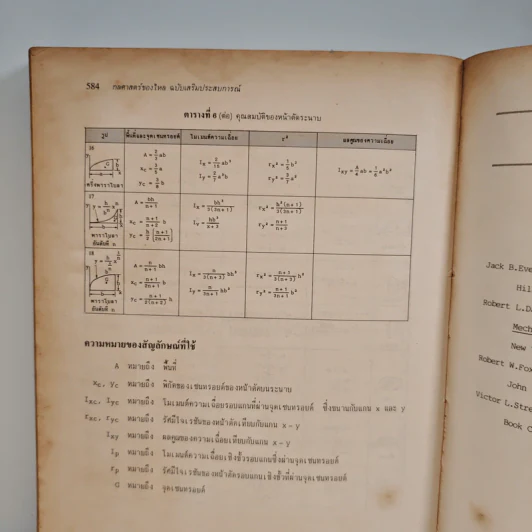 584 กลศาสตร์ของไหล ฉบับเสริมประสบการณ์
ตารางที่ 6 (ต่อ) คุณสมบัติของหน้าตัดระนาบ
รูป พื้นที่และจุดเซนทรอยด์ โมเมนต์ความเฉื่อย r² ผลคูณของความเฉื่อย
16
A = 2/3 ab
x_c = 3/5 a
y_c = 3/8 b
I_x = 2/15 ab³
I_y = 2/7 a³b
r_x² = 1/5 b²
r_y² = 3/7 a²
ครึ่งพาราโบลา
17
A = bh/(n+1)
x_c = (n+1)/(n+2) b
I_y = hb³/(n+3)
r_y² = (n+1)/(n+3)
พาราโบลา
อันดับที่ n
18
A = n/(n+1) bh
x_c = (n+1)/(2n+1) b
y_c = (n+1)/(2(n+2)) h
พาราโบลา
อันดับที่ n
ความหมายของสัญลักษณ์ที่ใช้
A หมายถึง พื้นที่
x_c, y_c หมายถึง พิกัดของเซนทรอยด์ของหน้าตัดบนระนาบ
I_xc, I_yc หมายถึง โมเมนต์ความเฉื่อยรอบแกนที่ผ่านจุดเซนทรอยด์ ซึ่งขนานกับแกน x และ y
r_xc, r_yc หมายถึง รัศมีไจเรชันของหน้าตัดเทียบกับแกน x - y
I_xy หมายถึง ผลคูณของความเฉื่อยเทียบกับแกน x - y
I_p หมายถึง โมเมนต์ความเฉื่อยเชิงขั้วรอบแกนซึ่งผ่านจุดเซนทรอยด์
r_p หมายถึง รัศมีไจเรชันของหน้าตัดรอบแกนเชิงขั้วที่ผ่านจุดเซนทรอยด์
G หมายถึง จุดเซนทรอยด์
Jack B.Eve
Hil
Robert L.Da
Mech
New
Robert W.Fox
John
Victor L.Stre
Book C